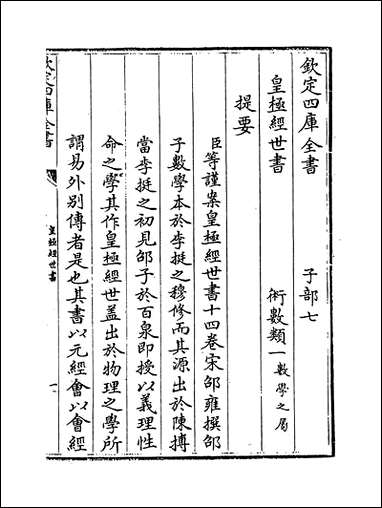 欽定四庫全書　子部七
皇極經世書　術數類一數學之屬
提要
臣等謹案皇極經世書十四卷宋邵雍撰邵
子數學本於李挺之穆修而其源出於陳摶
當李挺之初見邵子於百泉即授以義理性
命之學其作皇極經世蓋出於物理之學所
謂易外別傳者是也其書以元經會以會經
欽定四庫全書
皇極經世書
一